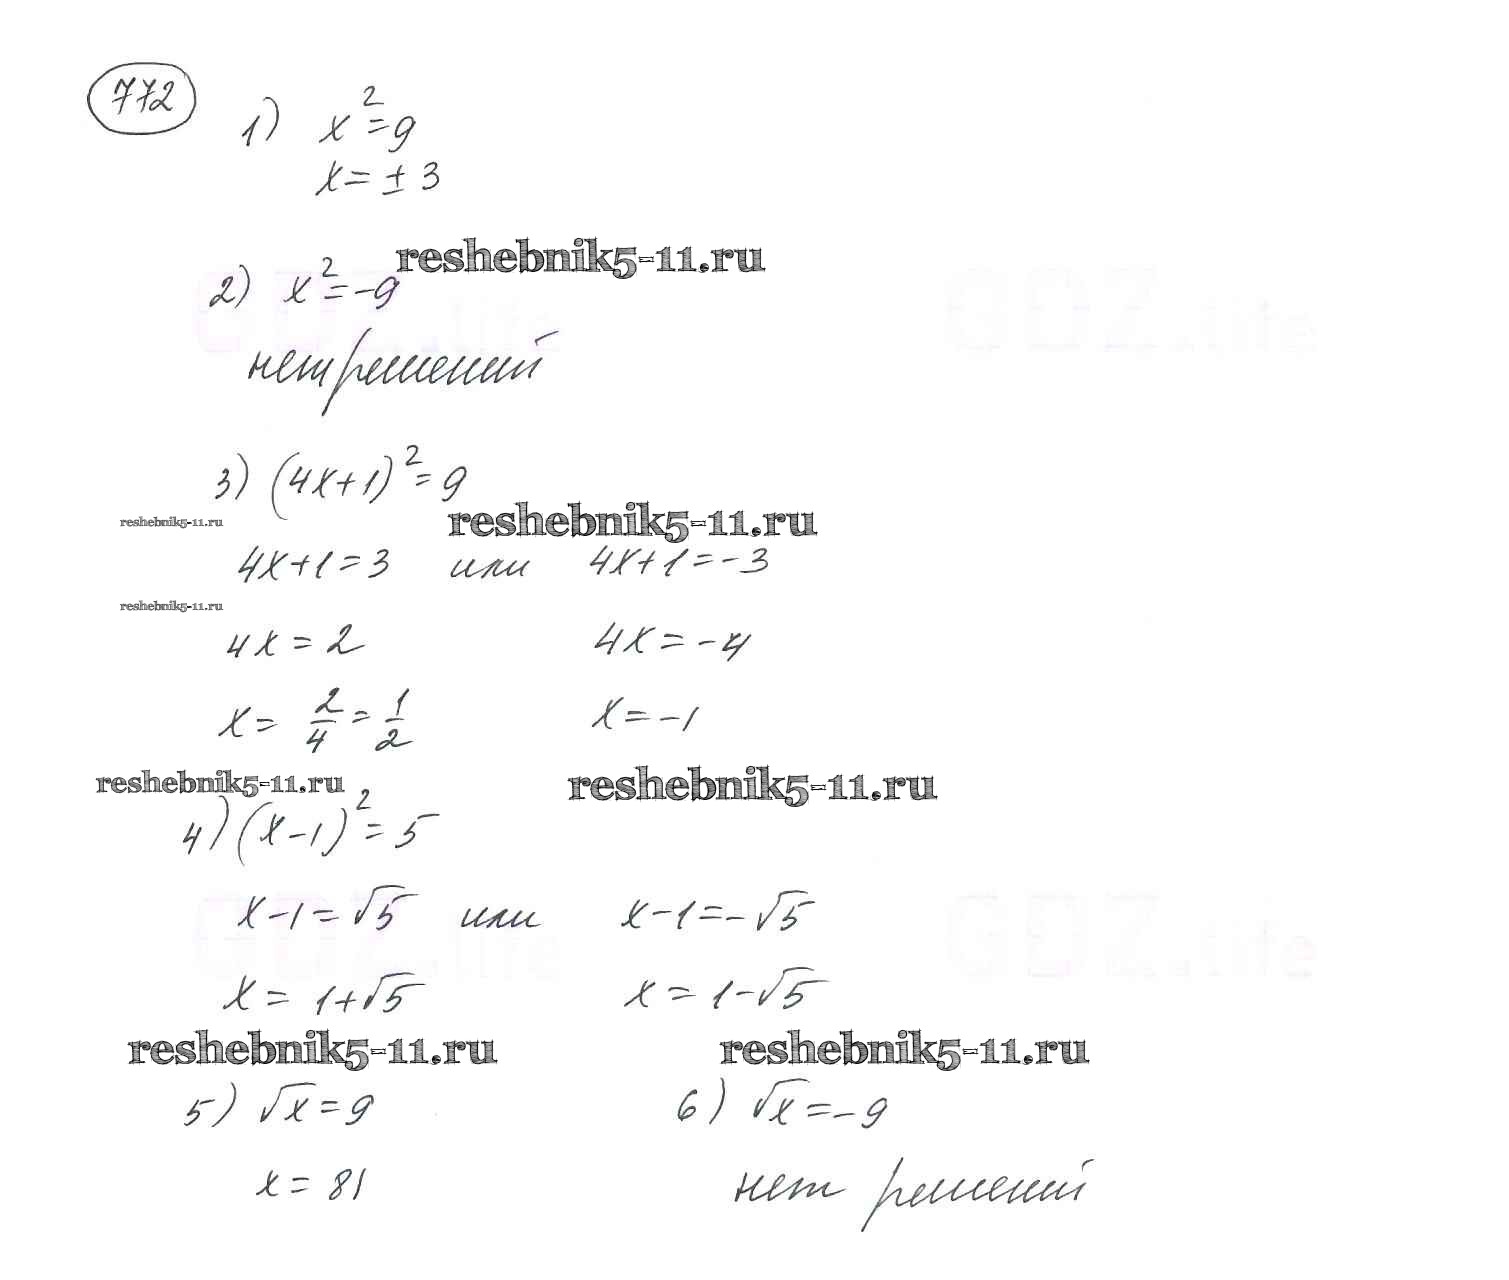 772
1) x² = 9
x = ± 3
reshebnik5-11.ru
2) x² = -9
GDZ.life GDZ.life
нет решений
3) (4x+1)² = 9
reshebnik5-11.ru reshebnik5-11.ru
4x+1=3 или 4x+1=-3
reshebnik5-11.ru
4x = 2 4x = -4
x = 2/4 = 1/2 x = -1
reshebnik5-11.ru reshebnik5-11.ru
4) (x-1)² = 5
x-1=√5 или x-1=-√5
GDZ.life GDZ.life
x = 1+√5 x = 1-√5
reshebnik5-11.ru reshebnik5-11.ru
5) √x = 9 6) √x = -9
x = 81 нет решений